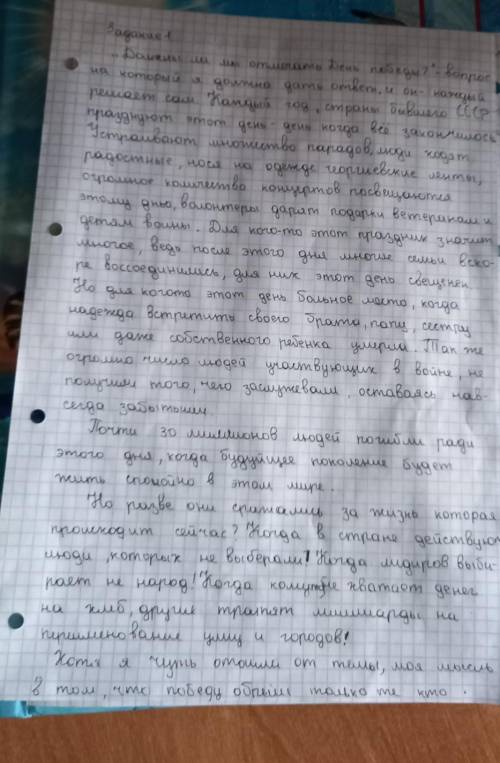 Задание 1
"Должны ли мы отмечать День победы?" - вопрос
на который я должна дать ответ, и он - каждый
решает сам. Каждый год, страны бывшего СССР
празднуют этот день - день когда всё закончилось
Устраивают множество парадов, люди ходят
радостные, нося на одежде георгиевские ленты,
огромное количество концертов посвещаются
этому дню, волонтеры дарят подарки ветеранам и
детям войны. Для кого-то этот праздник значит
многое, ведь после этого дня многие семьи вско-
ре воссоединились, для них этот день свещенен
Но для когото этот день больное место, когда
надежда встритить своего брата, папу, сестру
или даже собственного ребенка умерла. Так же
огромно число людей участвующих в войне, не
получили того, чего заслужевали, оставаясь нав-
сегда забытыми.
Почти 30 миллионов людей погибли ради
этого дня, когда будуйщее поколение будет
жить спокойно в этом мире.
Но разве они сражались за жизнь которая
происходит сейчас? Когда в стране действуют
люди, которых не выберали! Когда лидиров выби-
рает не народ! Когда не хватает денег
на хлеб, другие тратят миллиарды на
переименование улиц и городов!
Хотя я чуть отошли от темы, моя мысль
в том, что победу обрели только те кто